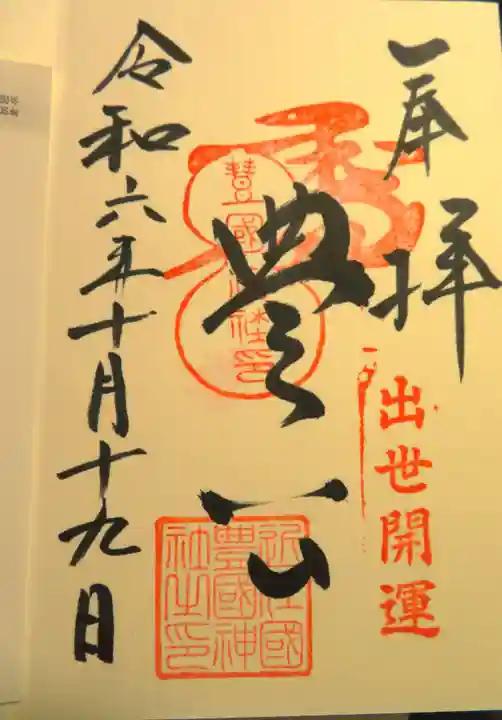 奉拝
出世開運
豊公
豊國神社印
近江國
豊國神
社之印
令和六年十月十九日